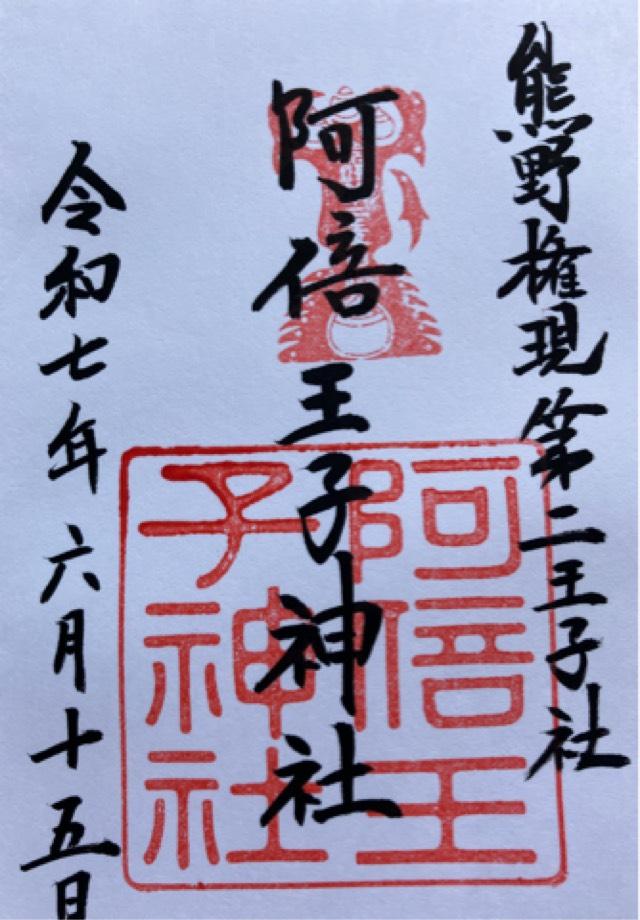 熊野権現第二王子社
阿倍王子神社
阿倍王子神社
令和七年六月十五日